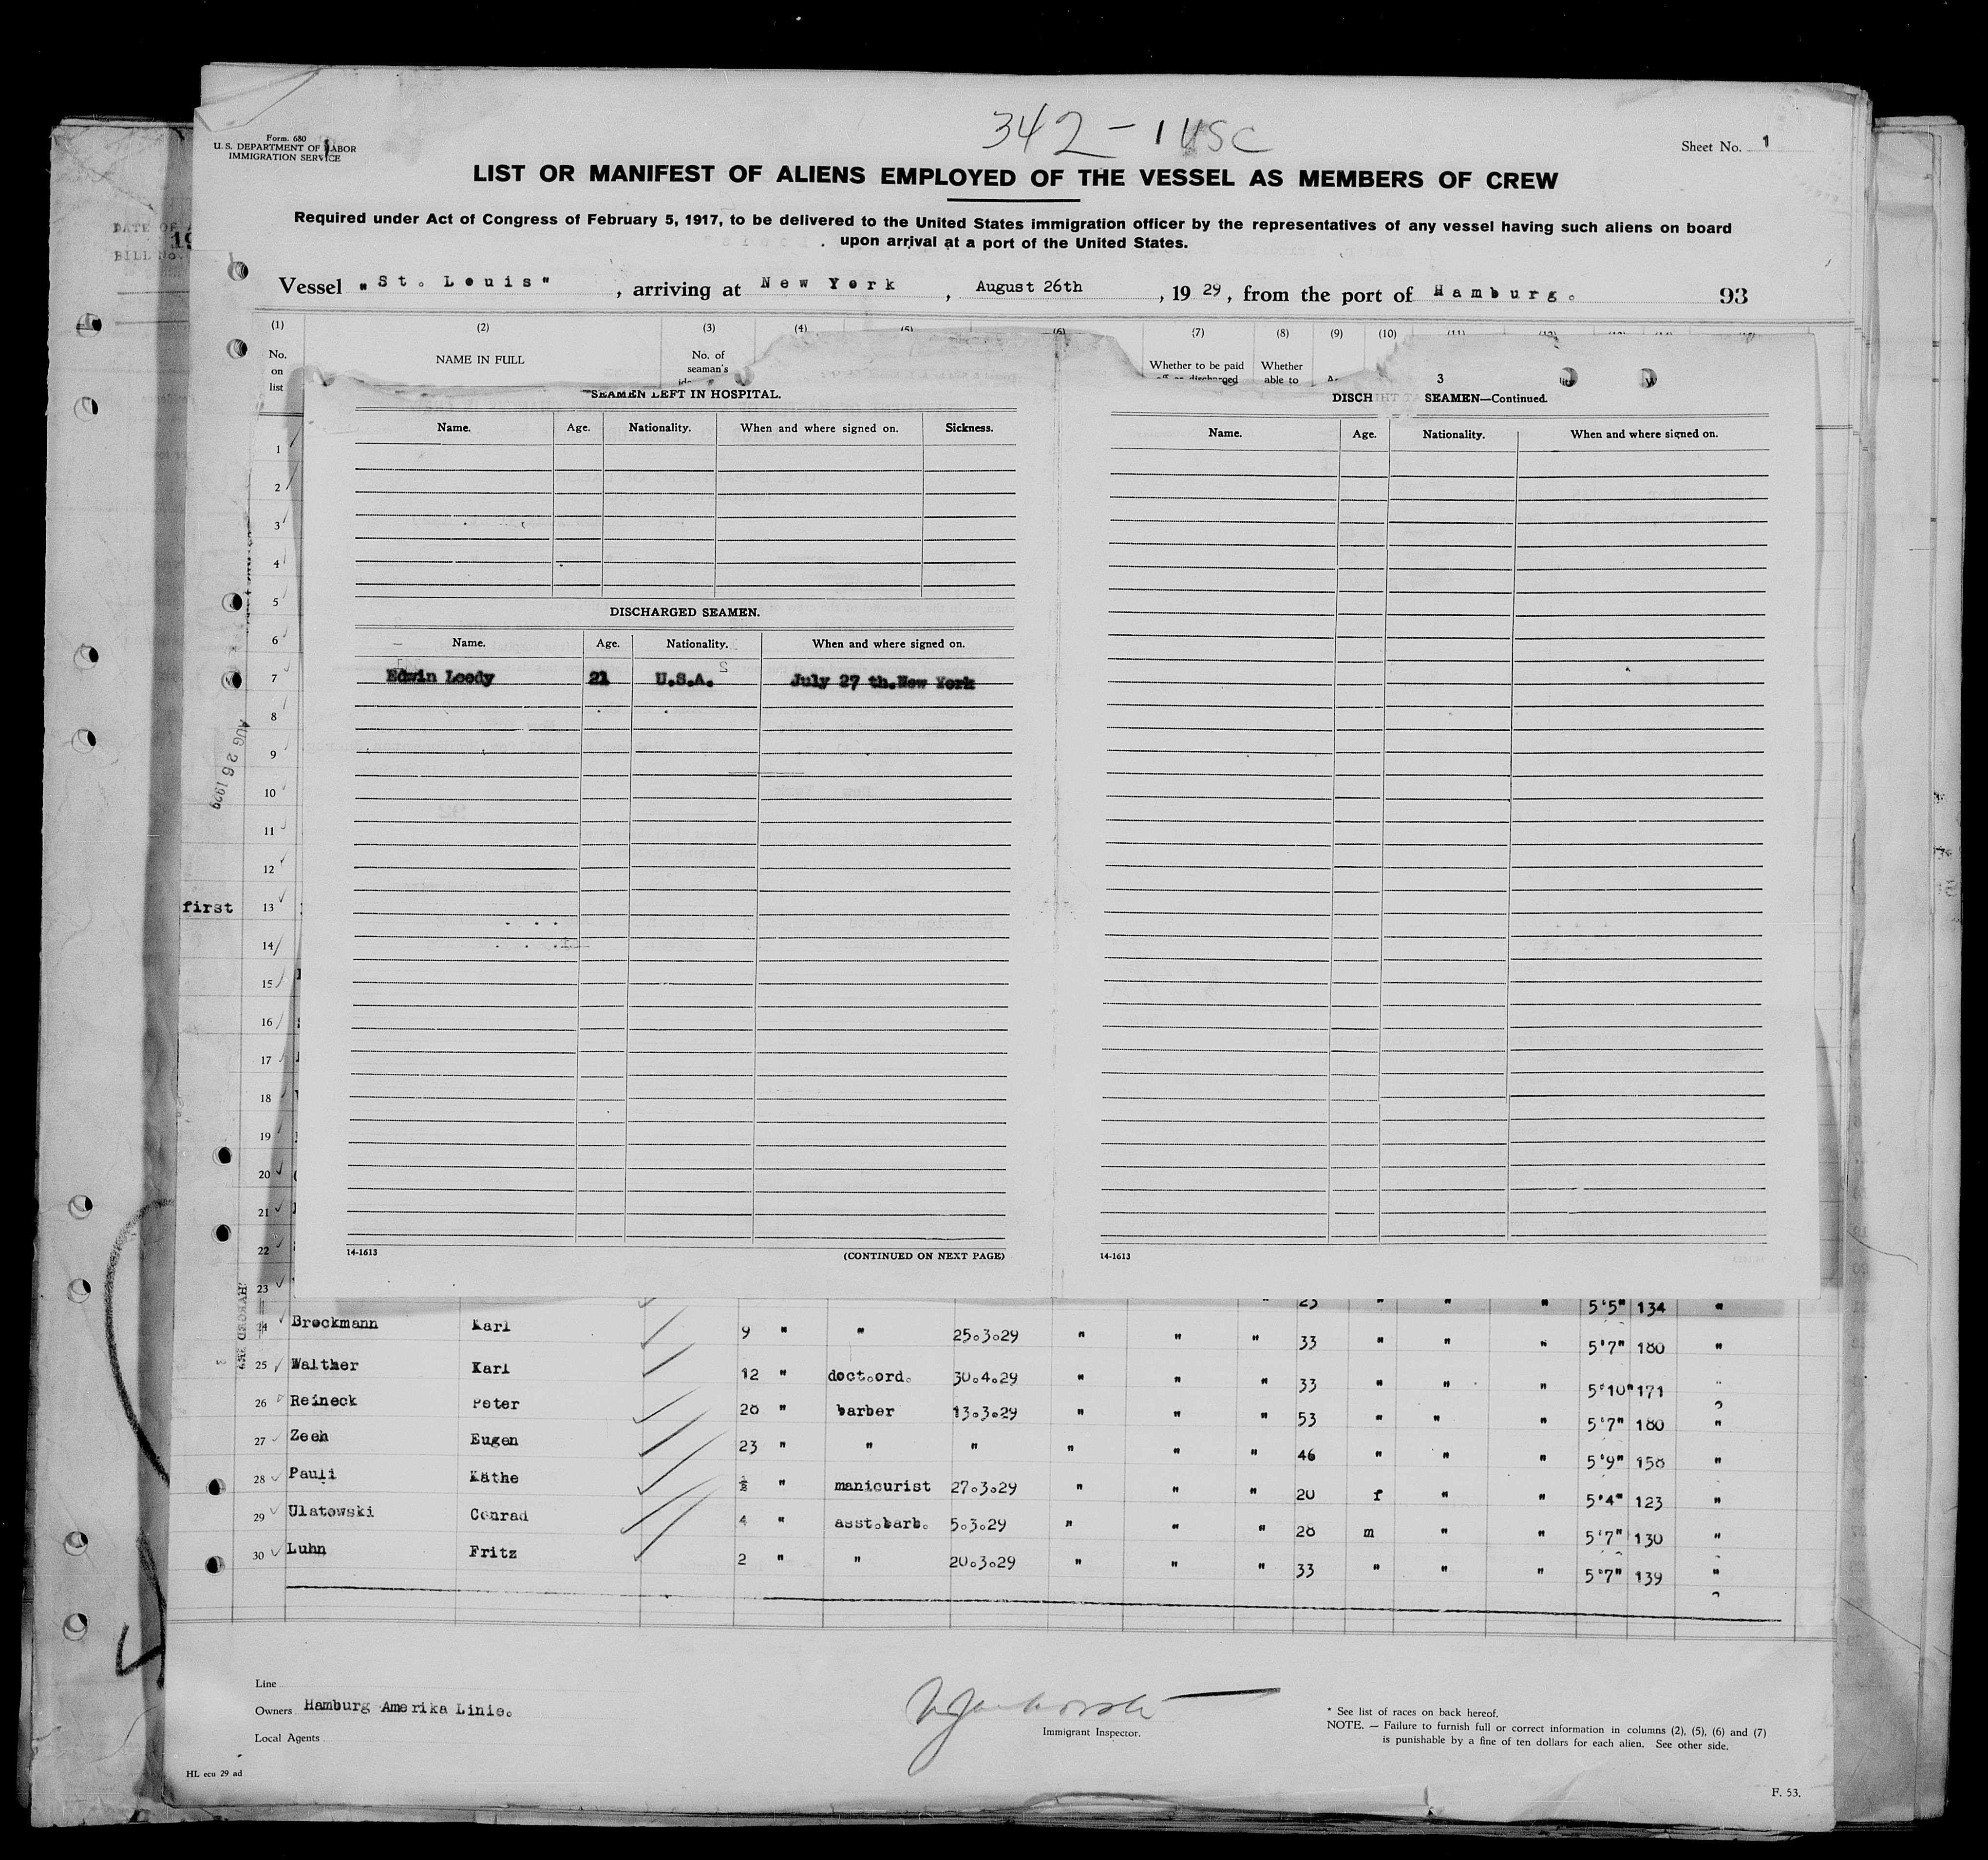 342 - 1 USC
Form. 680
U. S. DEPARTMENT OF LABOR
IMMIGRATION SERVICE
Sheet No. 1
LIST OR MANIFEST OF ALIENS EMPLOYED OF THE VESSEL AS MEMBERS OF CREW
Required under Act of Congress of February 5, 1917, to be delivered to the United States immigration officer by the representatives of any vessel having such aliens on board
upon arrival at a port of the United States.
DATE OF
19
BILL No.
Vessel "St. Louis", arriving at New York, August 26th, 1929, from the port of Hamburg. 93
(1) (2) (3) (4) (5) (6) (7) (8) (9) (10) (11)
No. on list
NAME IN FULL
No. of seaman's
Whether to be paid off or discharged
Whether able to
3
SEAMEN LEFT IN HOSPITAL.
Name. Age. Nationality. When and where signed on. Sickness.
DISCHARGED SEAMEN.
Name. Age. Nationality. When and where signed on.
Edwin Loody 21 U.S.A. July 27 th.New York
14-1613
(CONTINUED ON NEXT PAGE)
DISCH SEAMEN—Continued.
Name. Age. Nationality. When and where signed on.
14-1613
1
2
3
4
5
6
7
8
9
10
11
12
first 13
14
15
16
17
18
19
20
21
22
23
AUG 26 1929
5'5" 134 "
24 Brockmann Karl 9 " " 25.3.29 " " " 33 " " " 5'7" 180 "
25 Walther Karl 12 " doct.ord. 30.4.29 " " " 33 " " " 5'10" 171 "
26 Reineck Peter 20 " barber 13.3.29 " " " 53 " " " 5'7" 180 "
27 Zeeh Eugen 23 " " " " " " 46 " " " 5'9" 158 "
28 Pauli Käthe ½ " manicurist 27.3.29 " " " 20 f " " 5'4" 123 "
29 Ulatowski Conrad 4 " asst.barb. 5.3.29 " " " 28 m " " 5'7" 130 "
30 Luhn Fritz 2 " " 20.3.29 " " " 33 " " " 5'7" 139 "
Line
Owners Hamburg Amerika Linie.
Local Agents
Immigrant Inspector.
* See list of races on back hereof.
NOTE. — Failure to furnish full or correct information in columns (2), (5), (6) and (7)
is punishable by a fine of ten dollars for each alien. See other side.
HL ecu 29 ad
F. 53.